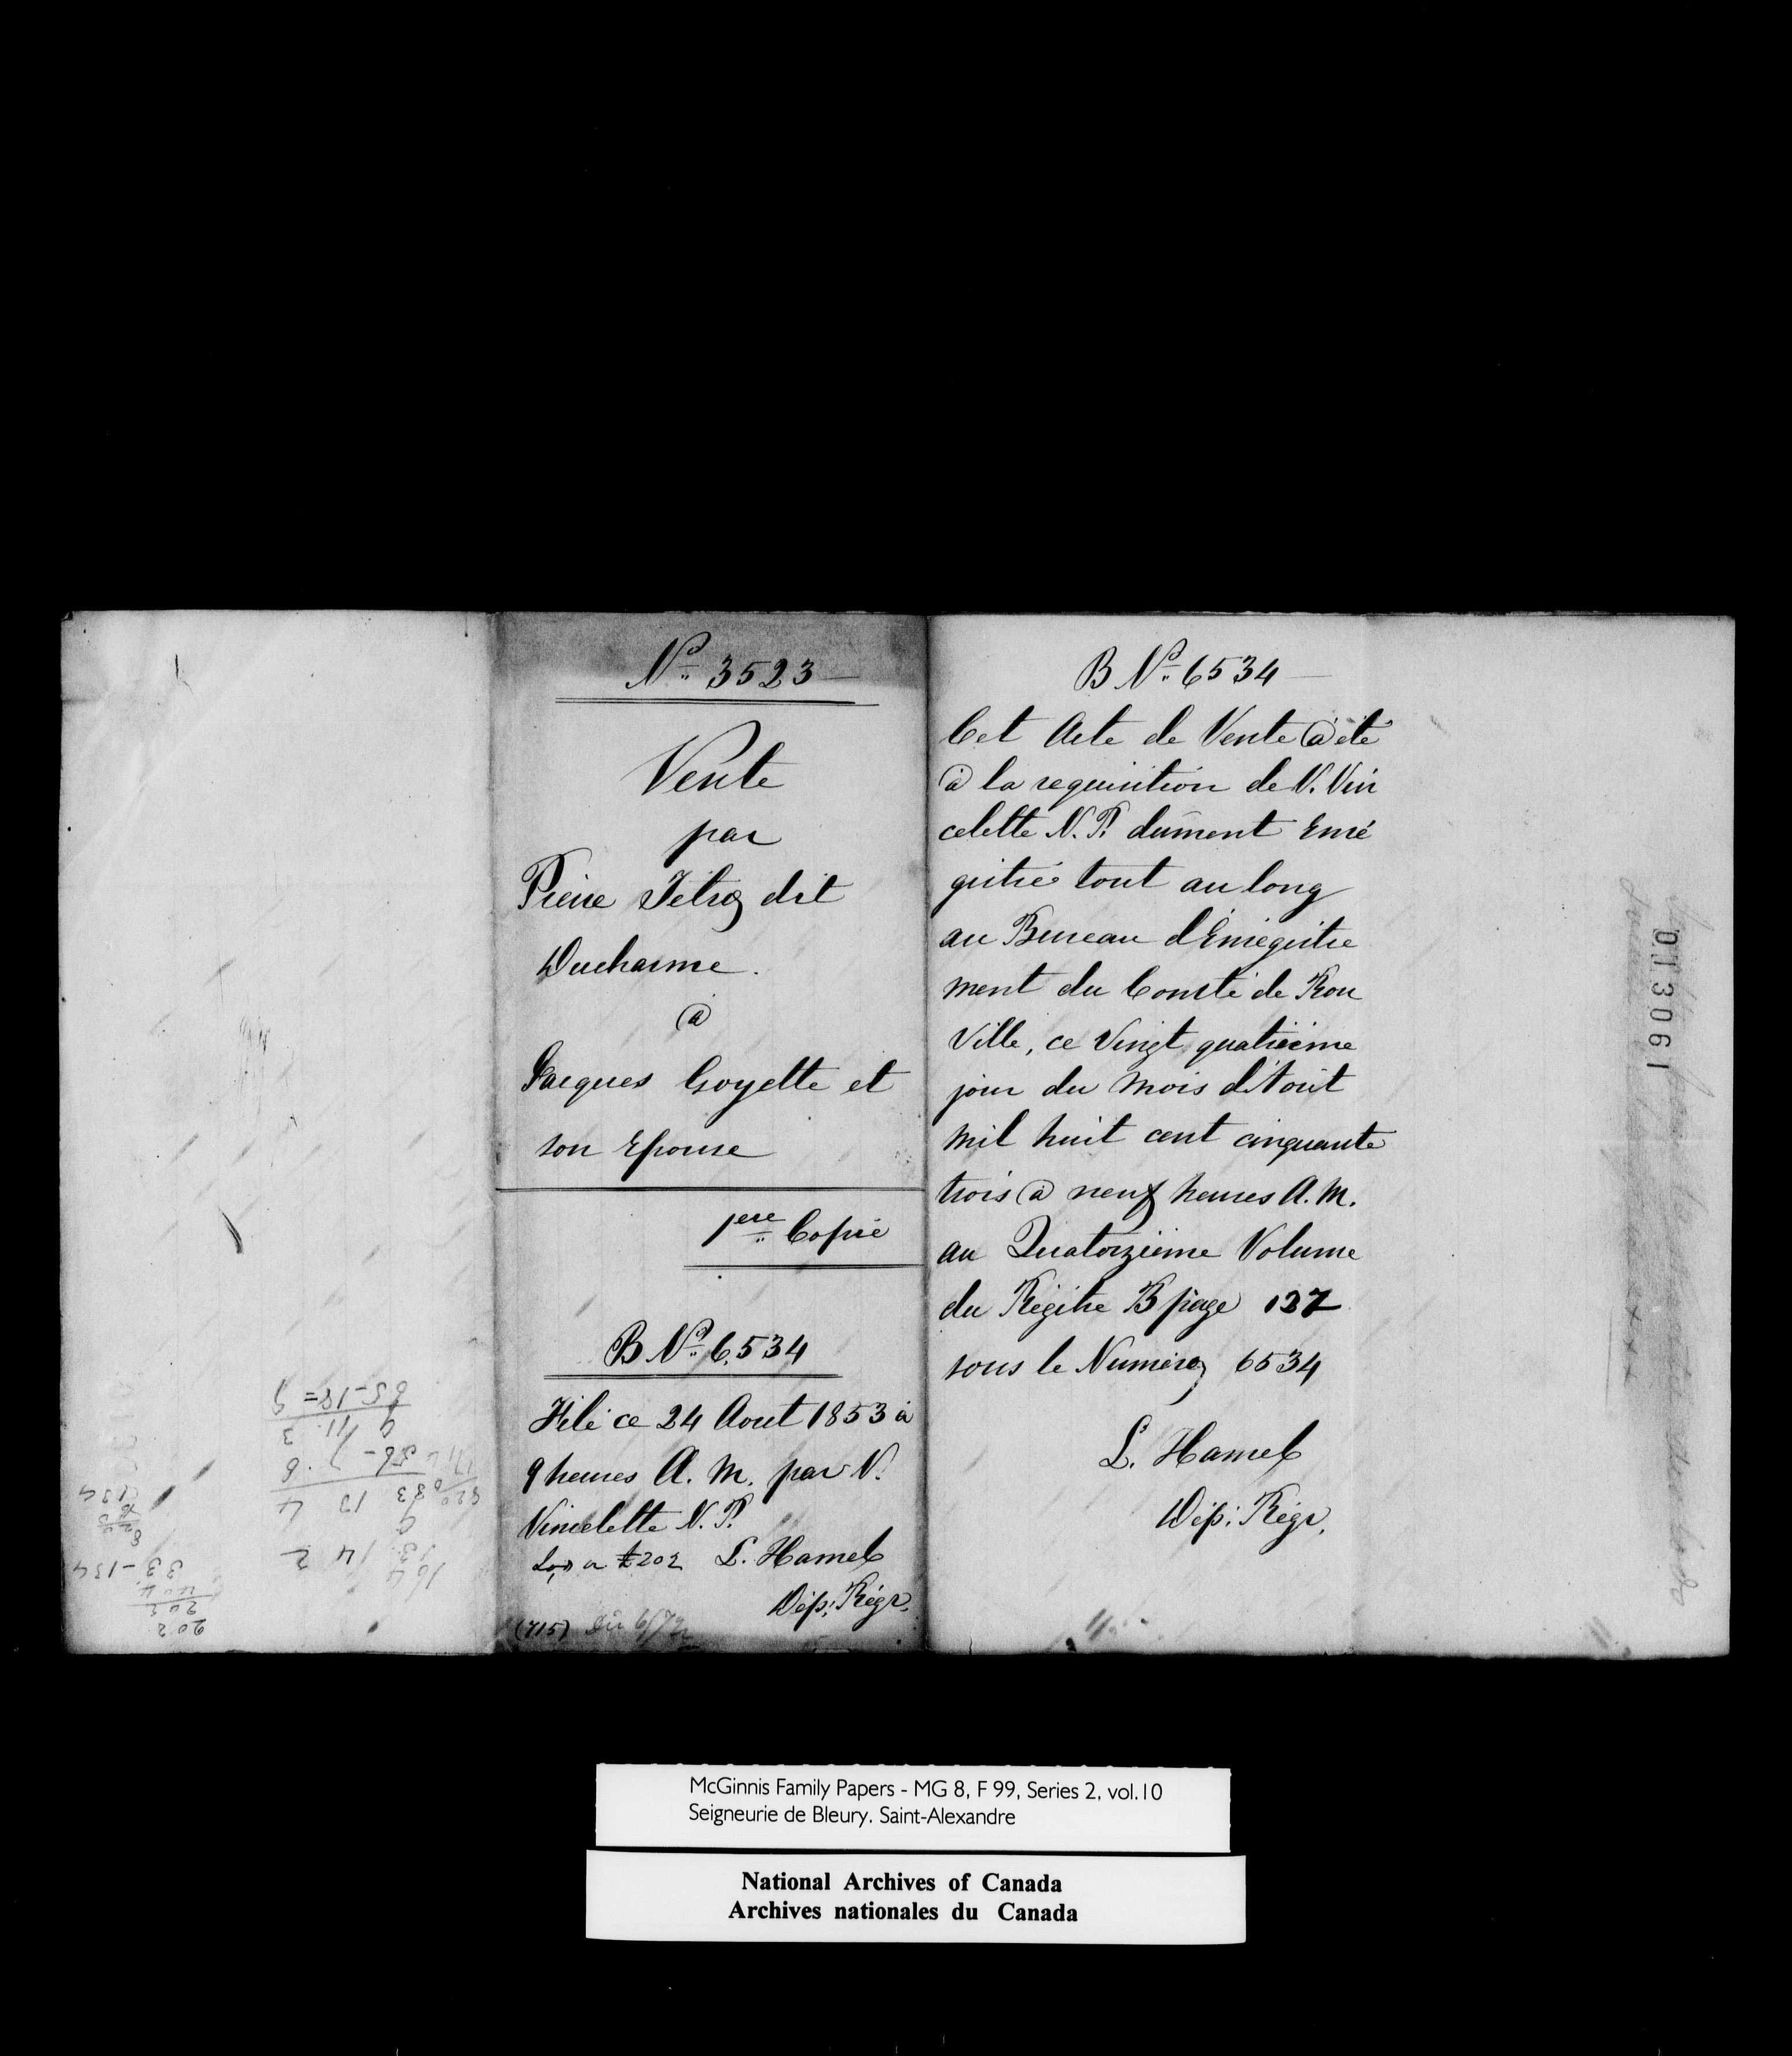 No. 3523
Vente
par
Pierre Tétro dit
Ducharme.
à
Jacques Goyette et
son Epouse
1ere Copie
B No. 6534
Filé ce 24 Aout 1853 à
9 heures A. M. par V.
Vincelette N. P.
L. Hamel
Dép: Régr.
(715)
B No. 6534
Cet Acte de Vente a été
à la requisition de V. Vin
celette N. P. dument Enré
gistré tout au long
au Bureau d'Enregistre
ment du Comté de Rou
ville, ce Vingt quatrième
jour du mois d'Aout
mil huit cent cinquante
trois à neuf heures A. M.
au Quatorzième Volume
du Régitre B page 137
sous le Numéro 6534
L. Hamel
Dép: Régr.
013061
202
202
33-134
134
McGinnis Family Papers - MG 8, F 99, Series 2, vol.10
Seigneurie de Bleury. Saint-Alexandre
National Archives of Canada
Archives nationales du Canada